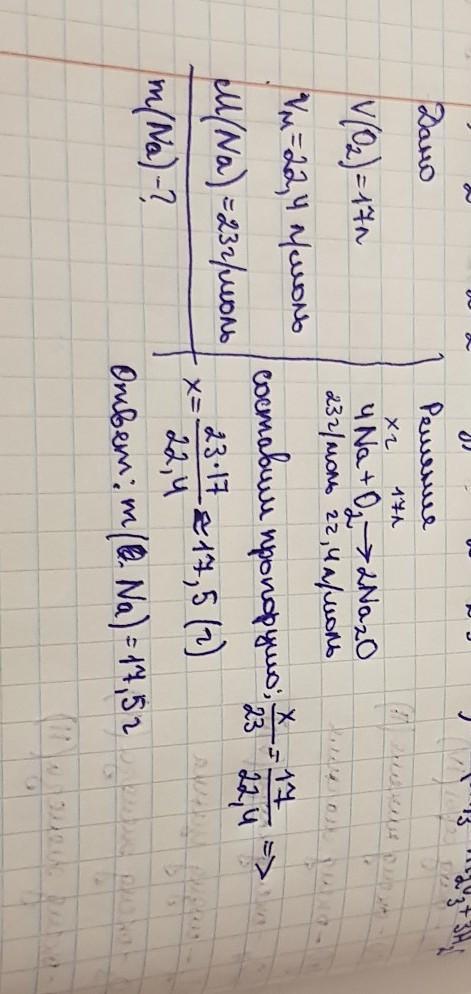 Дано
V(O₂) = 17л
Vм = 22,4 л/моль
M(Na) = 23г/моль
m(Na) - ?
Решение
xг 17л
4Na + O₂ → 2Na₂O
23г/моль 22,4 л/моль
составим пропорцию: x/23 = 17/22,4 =>
x = 23·17/22,4 ≈ 17,5 (г)
Ответ: m(Na) = 17,5г